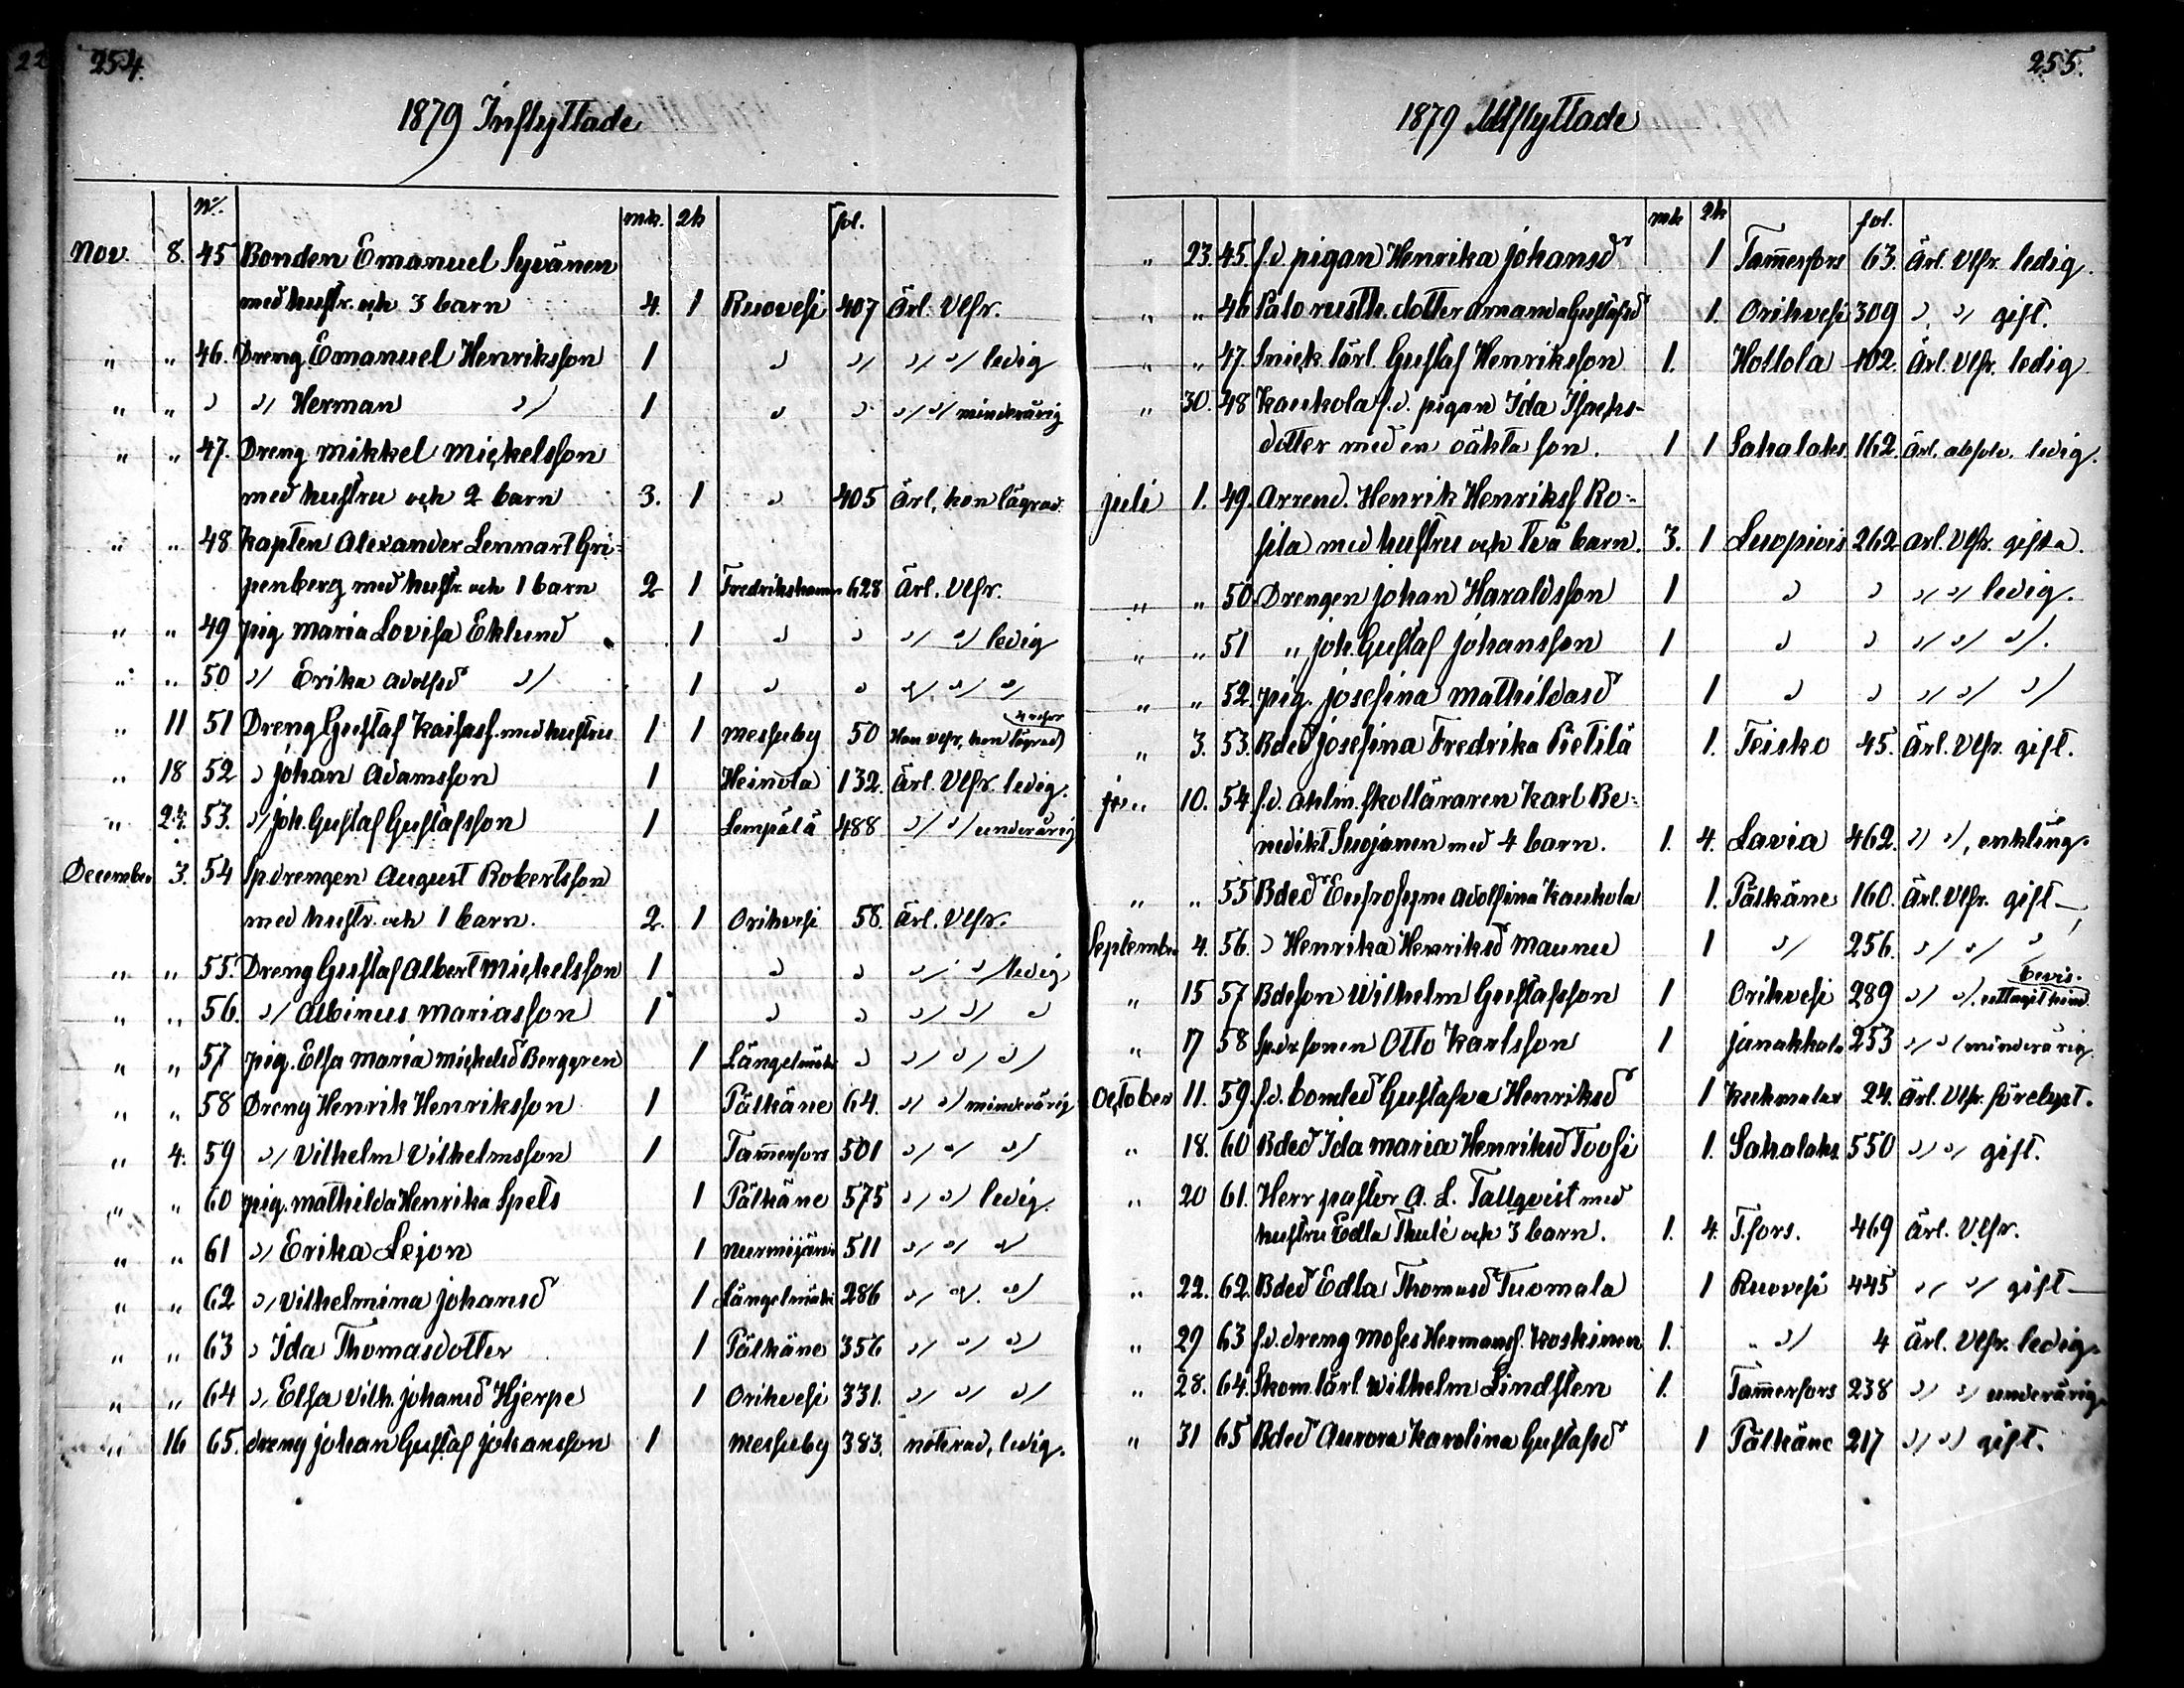 254.
1879 Inflyttade
No. mk. qk fol.
Nov. 8. 45 Bonden Emanuel Syvänen
med hustr. och 3 barn 4. 1 Ruovesi 407 Ärl. Vlfr.
" " 46. Dreng Emanuel Henriksson 1 " " " " ledig
" " " " Herman " 1 " " " " minderårig
" " 47. Dreng Mikkel Mickelsson
med hustru och 2 barn 3. 1 " 405 Ärl, hon lägrad.
" " 48 Kapten Alexander Lennart Gri=
penberg med hustr. och 1 barn 2 1 Fredrikshamn 628 Ärl. Vlfr.
" " 49 pig Maria Lovisa Eklund 1 " " " " ledig
" " 50 " Erika Adolfsd " 1 " " " " "
" 11 51 Dreng Gustaf Kaisas. med hustru 1 1 Messuby 50 Han vlfr, hon lägrad
" 18 52 " Johan Adamsson 1 Heinola 132. Ärl. Vlfr. ledig.
" 53. " Joh. Gustaf Gustafsson 1 Lempälä 488 " " underårig
December 3. 54 Sp.drengen August Robertsson
med hustr. och 1 barn. 2. 1 Orihvesi 58. Ärl. Vlfr.
" " 55. Dreng Gustaf Albert Mickelsson 1 " " " " ledig
" " 56. " Albinus Mariasson 1 " " " " "
" " 57 pig. Elsa Maria Mickelsd Berggren 1 Längelmäki " " " "
" " 58 Dreng Henrik Henriksson 1 Pälkäne 64. " " minderårig
" 4. 59 " Vilhelm Vilhelmsson 1 Tam̄erfors 501 " " "
" " 60 pig. Mathilda Henrika Spets 1 Pälkäne 575 " " ledig.
" " 61 " Erika Lejon 1 Nurmijärvi 511 " " "
" " 62 " Vilhelmina Johansd 1 Längelmäki 286 " " "
" " 63 " Ida Thomasdotter 1 Pälkäne 356 " " "
" " 64 " Elsa Vilh. Johansd Hjerpe 1 Orihvesi 331. " " "
" 16 65. dreng Johan Gustaf Johansson 1 Messuby 383. noterad, ledig.
255.
1879 Utflyttade
mk qk fol.
" 23. 45. f.d. pigan Henrika Johansd 1 Tam̄erfors 63. Ärl. Vlfr. ledig.
" " 46 Palo rusth. dotter Amanda Gustafsd 1. Orihvesi 309 " " gift.
" " 47. Snick. lärl. Gustaf Henriksson 1. Hollola 102. Ärl. Vlfr. ledig
" 30. 48 Kaukola f.d. pigan Ida Isacks-
dotter med en oäkta son. 1 1 Sahalaks 162. Ärl. absolv. ledig.
Juli 1. 49. Arrend. Henrik Henrikss Ro=
sila med hustru och två barn. 3. 1 Luopiois 262 Ärl. Vlfr. gifta.
" " 50. Drengen Johan Haraldsson 1 " " " " ledig.
" " 51 " Joh. Gustaf Johansson 1 " " " " ".
" " 52. pig. Josefina Mathildasd 1 " " " " "
" 3. 53. Bded Josefina Fredrika Pietilä 1. Teisko 45. Ärl. Vlfr. gift.
" 10. 54. f.d. Ahlm. skolläraren Karl Be=
nedikt Suojanen med 4 barn. 1. 4. Lavia 462. " ", enkling.
" " 55 Bded Eufrosyne Adolfina Kaukola 1. Pälkäne 160. Ärl. Vlfr. gift
September 4. 56. " Henrika Henriksd Maunu 1 " 256. " " "
" 15 57 Bdeson Wilhelm Gustafsson 1 Orihvesi 289 " ", uttagit hind. bevis.
" 17 58 Sp.dr sonen Otto Karlsson 1 Janakkala 253 " " minderårig.
October 11. 59. f.d. bonded Gustafva Henriksd 1 Kuhmalax 24. Ärl. Vlfr. förelyst.
" 18. 60 Bded Ida Maria Henriksd Toosi 1. Sahalaks. 550 " " gift.
" 20 61. Herr pastor A. L. Tallqvist med
hustru Edla Thulé och 3 barn. 1. 4. T.fors. 469 Ärl. Vlfr.
" 22. 62. Bded Edla Thomasd Tuomala 1 Ruovesi 445 " " gift
" 29 63 f.d. dreng Moses Hermanss. Koskinen 1. " " 4 Ärl. Vlfr. ledig.
" 28. 64. Skom. lärl. Wilhelm Lindsten 1. Tam̄erfors 238 " " underårig
" 31 65 Bded Aurora Karolina Gustafsd 1 Pälkäne 217 " " gift.